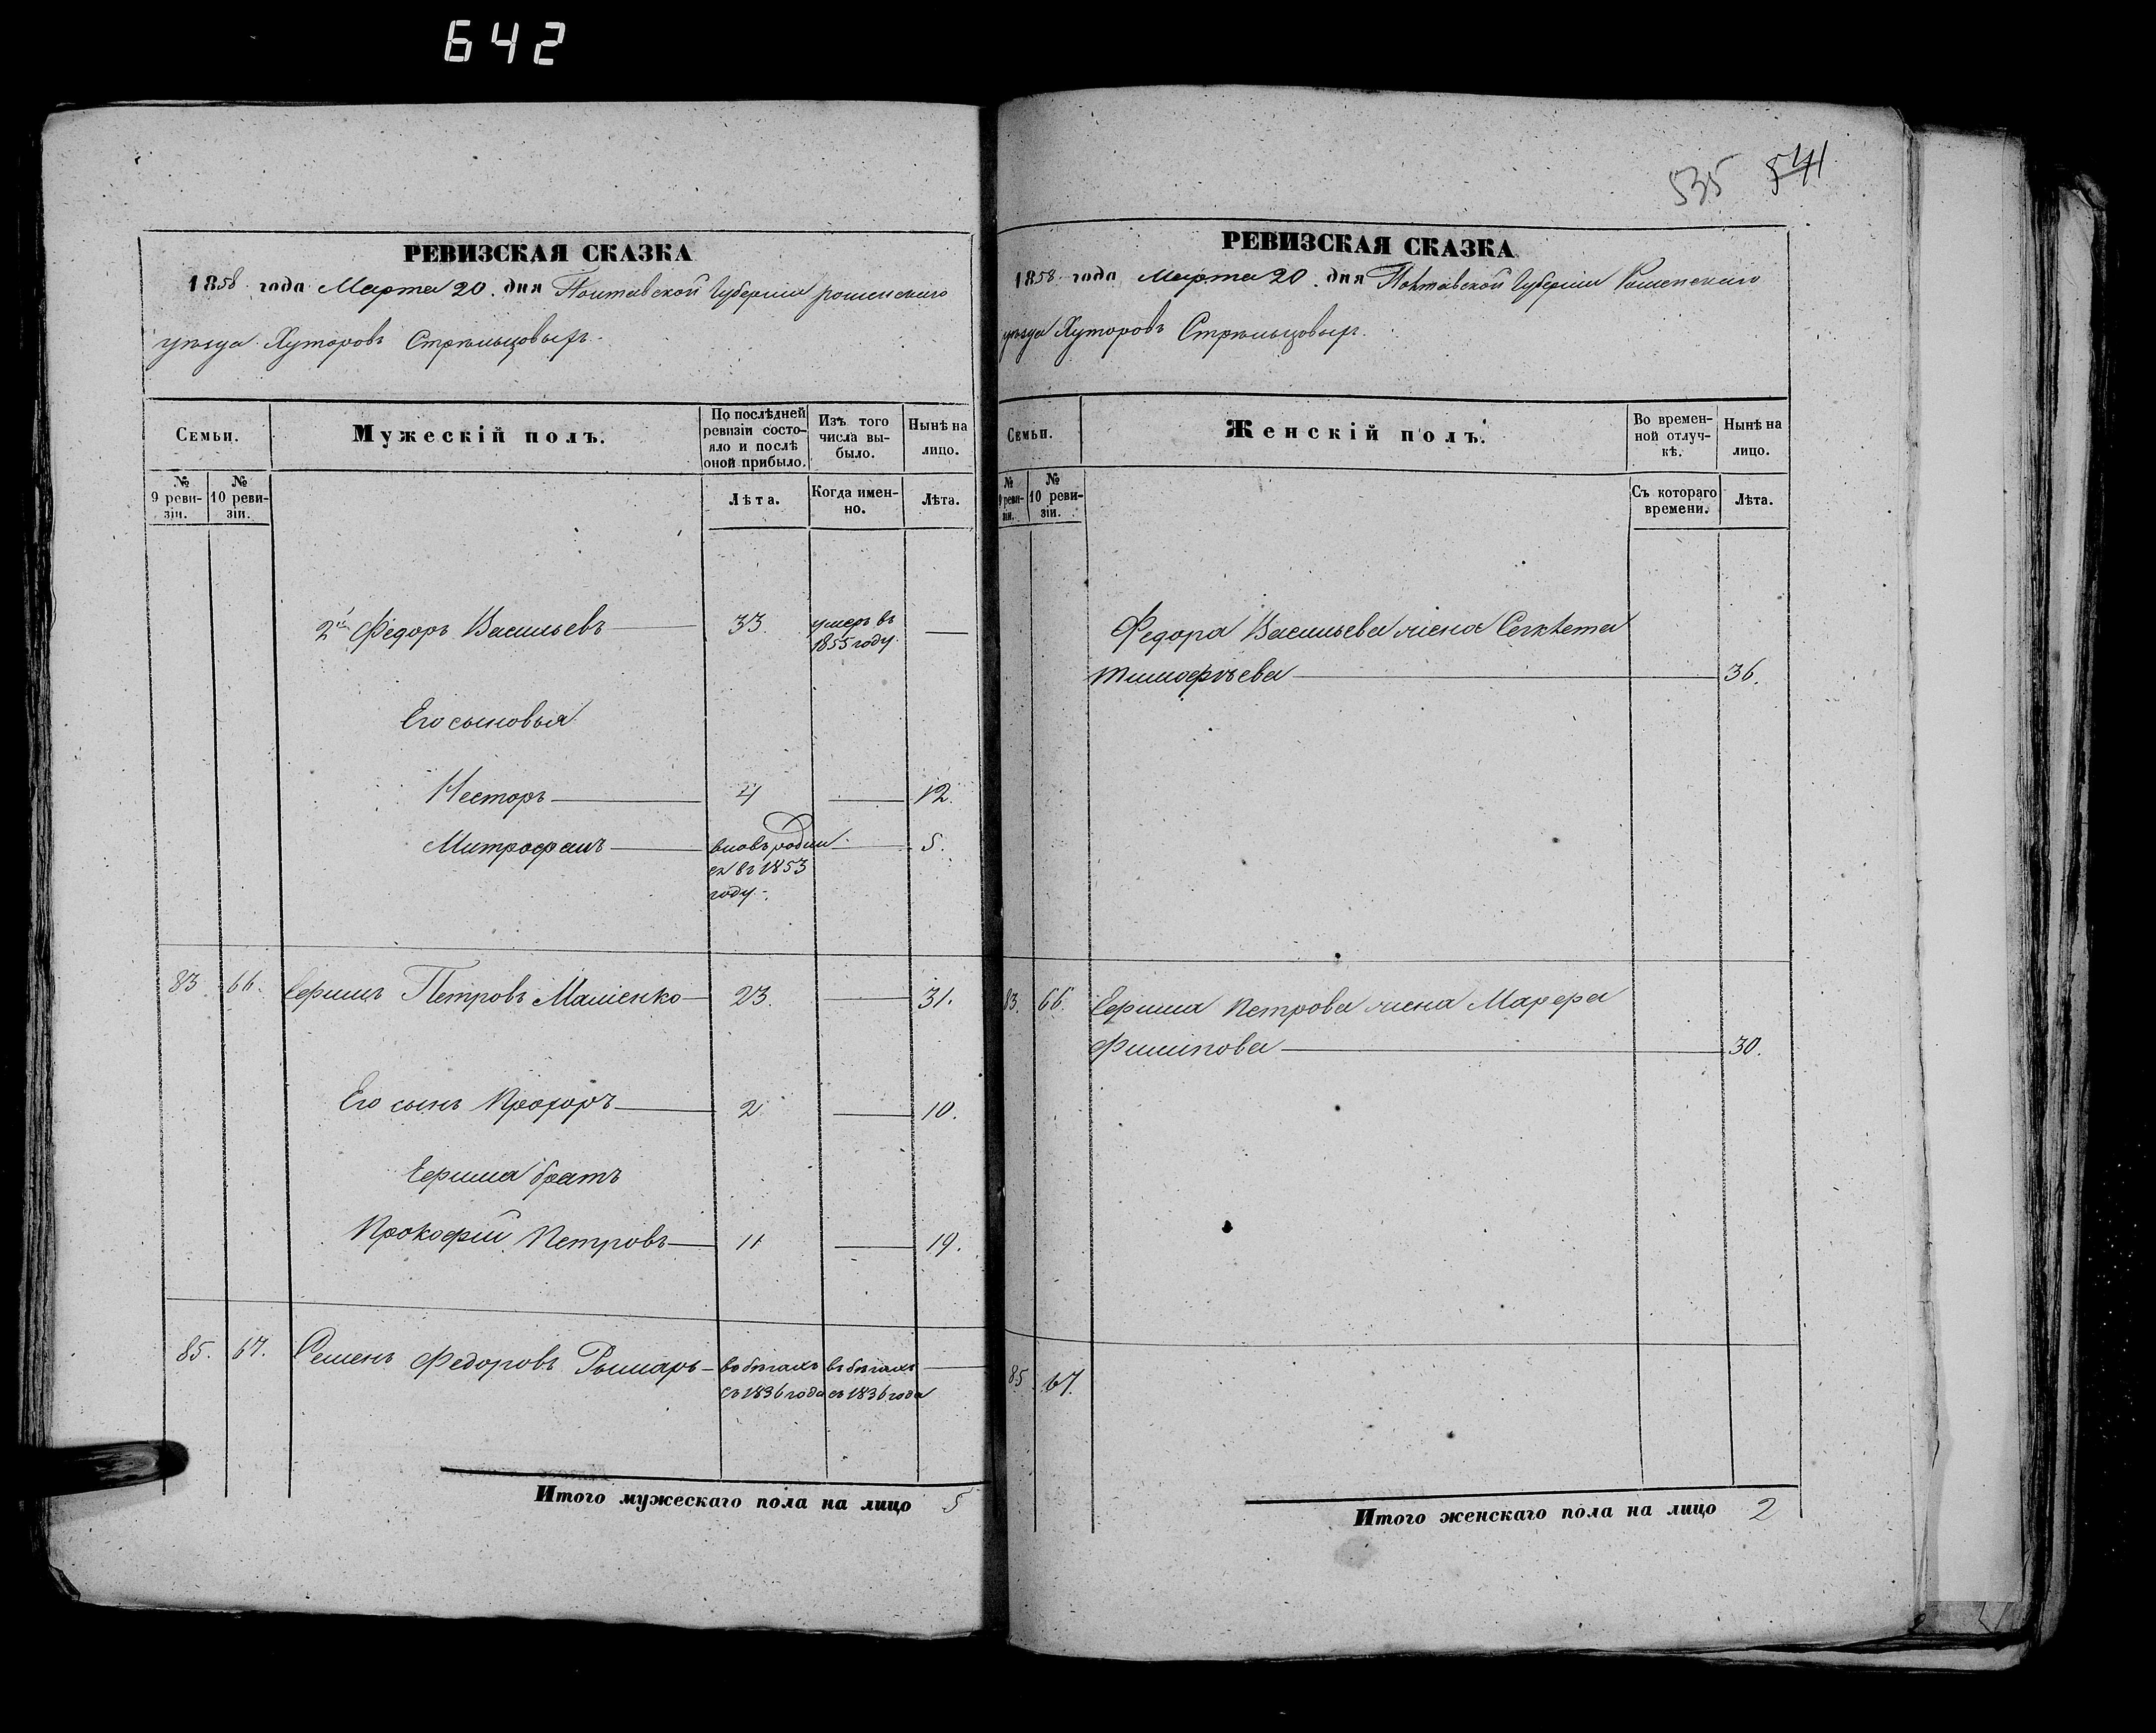 642
535 541
РЕВИЗСКАЯ СКАЗКА
1858 года Марта 20. дня Полтавской Губернiи роменскаго
уѣзда Хуторовъ Стрѣльцовыхъ.
Семьи.
Мужескій полъ.
По послѣдней ревизіи состо-
яло и послѣ
оной прибыло.
Изъ того
числа вы-
было.
Нынѣ на
лицо.
№
9 реви-
зіи.
№
10 реви-
зіи.
Лѣта.
Когда имен-
но.
Лѣта.
2й Федоръ Васильевъ 33. умеръ въ
1855 году. —
Его сыновья
Несторъ 4 — 12.
Митрофанъ вновь родил — 5.
ся въ 1853
году.
83 66. Ефимъ Петровъ 23. — 31.
Его сынъ Прохоръ 2 — 10.
Ефима братъ
Прокофій Петровъ 11 — 19.
85. 67. Семенъ Федоровъ Рымарь въ бѣгахъ въ бѣгахъ —
съ 1836 года съ 1836 года
Итого мужескаго пола на лицо 5
РЕВИЗСКАЯ СКАЗКА
1858 года Марта 20. дня Полтавской Губерніи Роменскаго
уѣзда Хуторовъ Стрѣльцовыхъ.
Семьи.
Женскій полъ.
Во времен-
ной отлуч-
кѣ.
Нынѣ на
лицо.
№
9 реви-
зіи.
№
10 реви-
зіи.
Съ котораго
времени.
Лѣта.
Федора Васильева жена
Тимофѣева 36.
83. 66. Ефима Петрова жена Марфа
Филипова 30.
85 67.
Итого женскаго пола на лицо 2